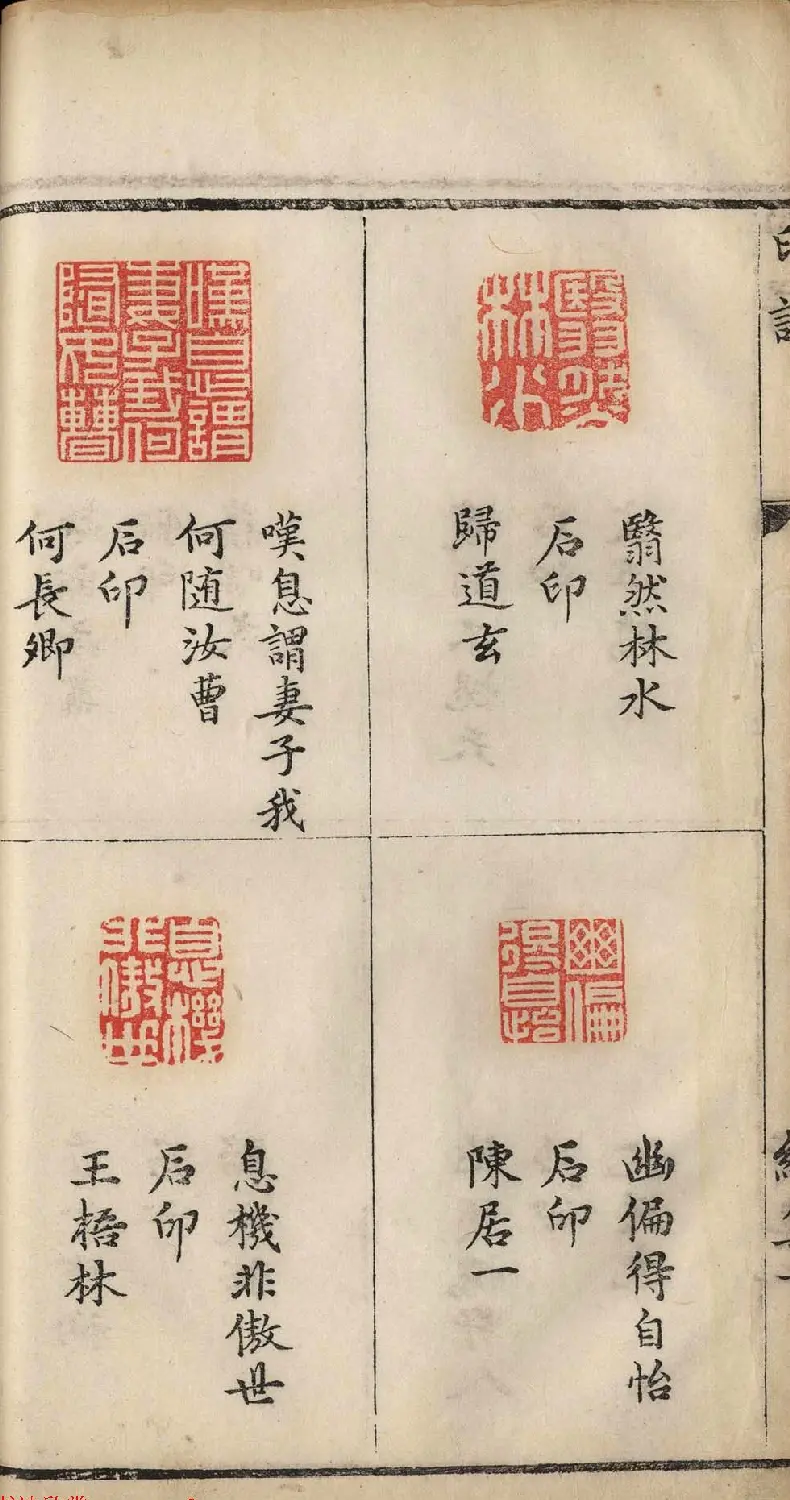 翳然林水
石印
歸道玄
幽偏得自怡
石印
陳居一
嘆息謂妻子我
何随汝曹
石印
何長卿
息機非傲世
石印
王梧林